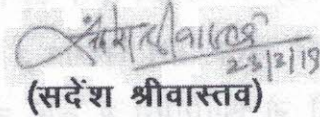 23/2/19
(सदेंश श्रीवास्तव)